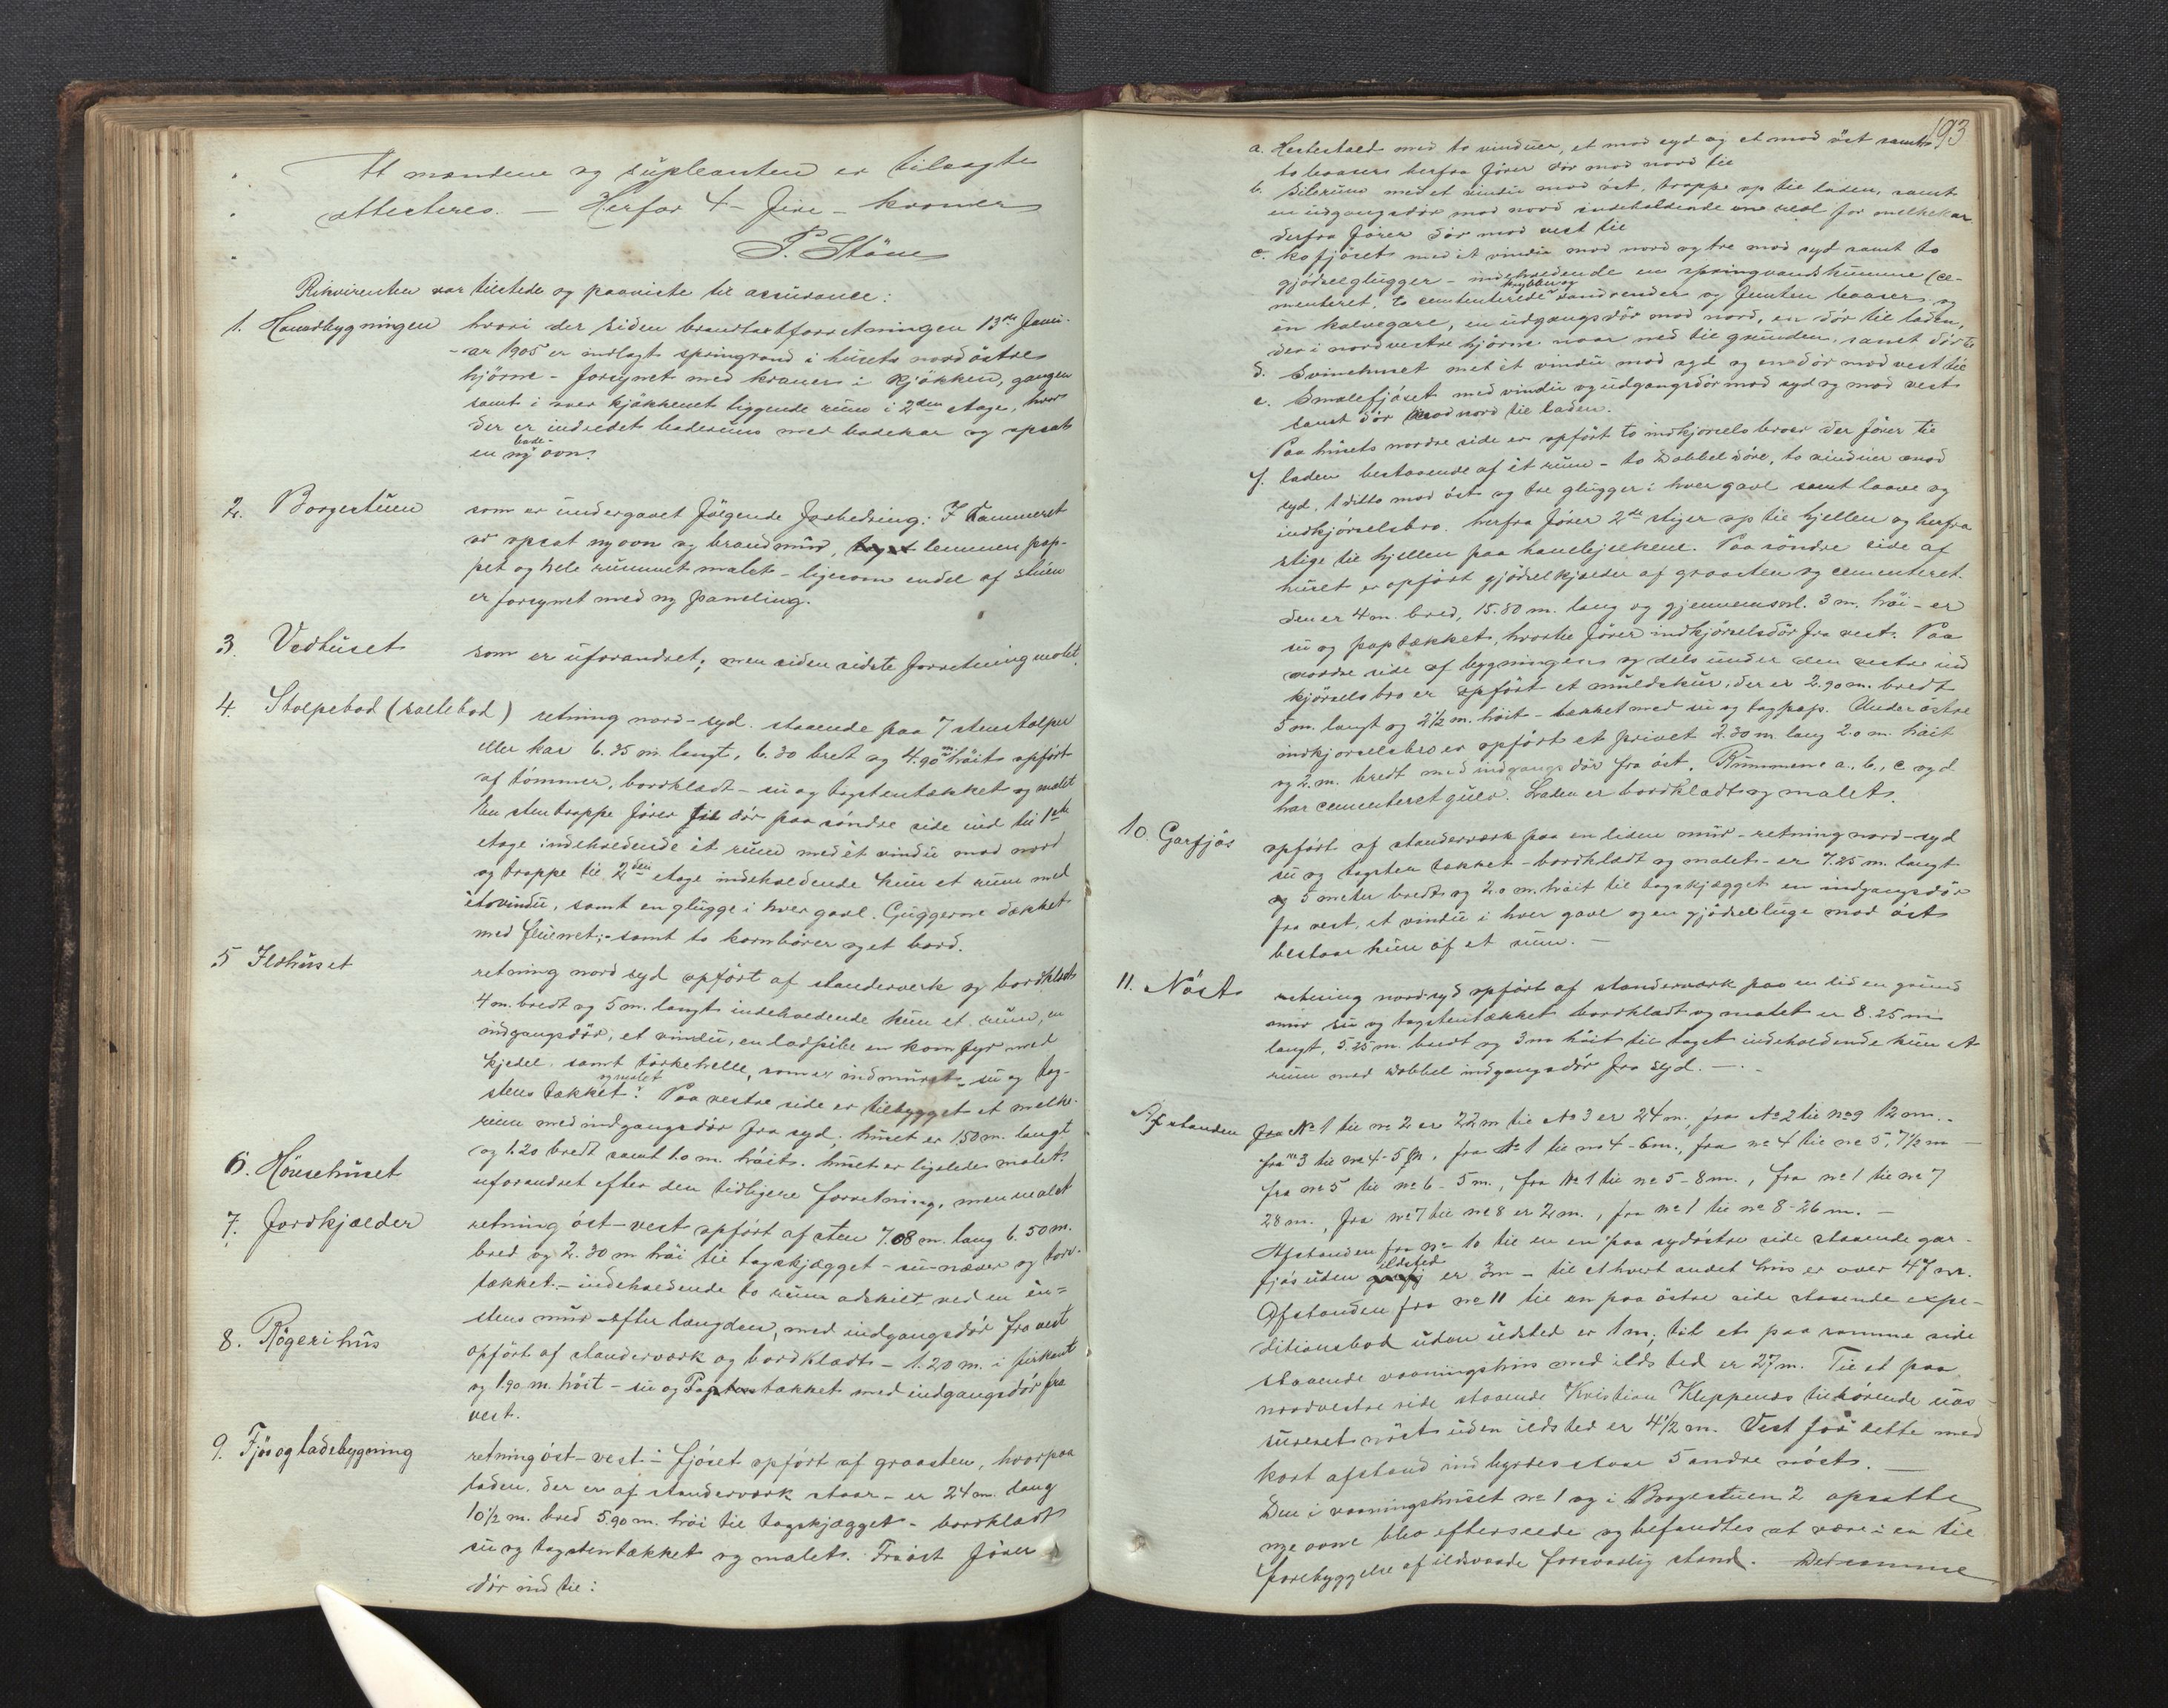 At mændene og supleanten er tilsagte
attesteres. — Herfor 4 - fire - kroner
P. Stöve
Rekvirenten var tilstede og paaviste til assurance:
1. Hovedbygningen hvori der siden brandtaxtforretningen 13de Janu-
-ar 1905 er indlagt springvand i husets nordöstre
hjörne - forsynet med kraner i kjökken, gangen
samt i over kjökkenet liggende rum i 2den etage, hvor
der er indredet baderum med badekar og opsat
en ny bade-ovn.
2. Borgestuen som er undergaaet fölgende forbedring: I kammeret
er opsat ny ovn og brandmur, lemmen pap-
pet og hele rummet malet - ligesom endel af stuen
er forsynet med ny paneling.
3. Vedhuset som er uforandret; men siden sidste forretning malet.
4. Stolpebod (saltebod) retning nord-syd. staaende paa 7 stenstolper
eller kar 6.35 m. langt, 6.30 bret og 4.90 m höit opfört
af tömmer, bordklædt - su og tagstentækket og malet
En stentrappe förer til dör paa söndre side ind til 1ste
etage indeholdende ét rum med ét vindu mod nord
og trappe til 2den etage indeholdende kun et rum med
ét vindu, samt en glugge i hver gavl. Gluggerne dækket
med fluenet; - samt to kornbörer og et bord.
5 Ildhuset retning nord syd opfört af standerverk og bordklædt
4 m. bredt og 5 m. langt indeholdende kun et rum, en
indgangsdör, et vindu, en ladpibe en komfyr med
kjedel. samt törkehelle, som er indmuret - su og tag-
stens tækket og malet. Paa vestre side er tilbygget et melke-
rum med indgangsdör fra syd. huset er 1.50 m. langt
og 1.20 bredt samt 1.0 m. höit. huset er ligeledes malet.
6. Hönsehuset uforandret efter den tidligere forretning, men malet
7. Jordkjælder retning öst-vest opfört af sten 7.08 m. lang 6.50 m.
bred og 2.30 m höi til tagskjægget - su - næver og torv-
tækket. - indeholdende to rum adskilt ved en én=
stens mur efter længden, med indgangsdör fra vest
8. Rögerihus opfört af standerværk og bordklædt - 1.20 m. i firkant
og 1.90 m. höit - su og tækket med indgangsdör fra
vest.
9. Fjös og ladebygning retning öst-vest. - fjöset opfört af graasten, hvorpaa
laden. der er af standerværk staar - er 24 m. lang
10½ m. bred 5.90 m. höi til tagskjægget - bordklædt
su og tagstentækket og malet. Fra öst förer
dör ind til:
193
a. Hestestald med to vinduer, et mod syd og et mod öst samt
to baaser herfra förer dör mod nord til
b. Silorum med et vindu mod öst, trappe op til laden, samt
en udgangsdör mod nord indeholdende for melkekar
derfra förer dör mod vest til
c. kofjöset med ét vindu mod nord og tre mod syd samt to
gjödselglugger - indeholdende en springvandskumme (ce-
menteret, to cementerede krybber og vandrender og femten baaser og
en kalvegare, en udgangsdör mod nord, en dör til laden,
der i nordvestre hjörne naar ned til grunden, samt dör til
d. Svinehuset met ét vindu mod syd og en dör mod vest til
e. Smalefjöset med vindu og udgangsdör mod syd og mod vest
samt dör mod nord til laden.
Paa husets nordre side er opfört to indkjörsels broer der förer til
f. laden bestaaende af ét rum - to dobbel döre, to vinduer mod
syd, 1 ditto mod öst og tre glugger i hver gavl samt laave og
indkjörselsbro. herfra förer 2de stiger op til hjellen og herfra
stige til hjellen paa hanebjelkene. Paa söndre side af
huset er opfört gjödselkjælder af graasten og cementeret.
den er 4 m. bred, 15.80 m. lang og gjennemsnl. 3 m. höi - er
su og paptækket, hvortil förer indkjörselsdör fra vest. Paa
nordre side af bygningen og dels under den vestre ind
kjörsels bro er opfört et muldskur, der er 2.90 m. bredt
5 m. langt og 2½ m. höit - tækket med su og tagpap. Under östre
indkjörselsbro er opfört et privet 2.30 m. lang 2.0 m. höit
og 2 m. bredt med indgangsdör fra öst. Rummene a., b., c og d
har cementeret gulv. Laden er bordklædt og malet.
10. Garfjös opfört af standerværk paa en liden mur - retning nord-syd
su og tagsten tækket - bordklædt og malet - er 7.25 m. langt
og 5 meter bredt og 2.0 m. höit til tagskjægget en indgangsdör
fra vest, et vindu i hver gavl og en gjödselluge mod öst
bestaar kun af et rum. —
11. Nöst retning nord-syd opfört af standerværk paa en liden grund
mur su og tagstentækket bordklædt og malet er 8.25 m
langt, 5.25 m. bredt og 3 m höit til taget indeholdende kun et
rum med dobbel indgangsdör fra syd. —.
Afstanden fra No 1 til no 2 er 22 m til No 3 er 24 m, fra No 2 til no 9 12 m. -
fra no 3 til no 4 - 5 m, fra No 1 til no 4 - 6 m., fra no 4 til no 5, 7½ m —
fra no 5 til no 6 - 5 m., fra No 1 til no 5 - 8 m., fra no 1 til no 7
28 m., fra no 7 til no 8 er 2 m., fra no 1 til no 8 - 26 m. —
Afstanden fra no 10 til en en paa sydöstre side staaende gar-
fjös uden ildsted er 3 m - til ethvert andet hus er over 47 m.
Afstanden fra no 11 til en paa östre side staaende expe-
ditionsbod uden ildsted er 1 m; til et paa samme side
staaende vaaningshus med ildsted er 27 m. Til et paa
nordvestre side staaende Kristian Kleppenes tilhörende uas-
sureret nöst uden ildsted er 4½ m. Vest for dette med
kort afstand indbyrdes staar 5 andre nöst. —
Den i vaaningshuset no 1 og i Borgestuen 2 opsatte
nye ovne blev efterseede og befandtes at være i en til
forebyggelse af ildsvaade forsvarlig stand. Det samme